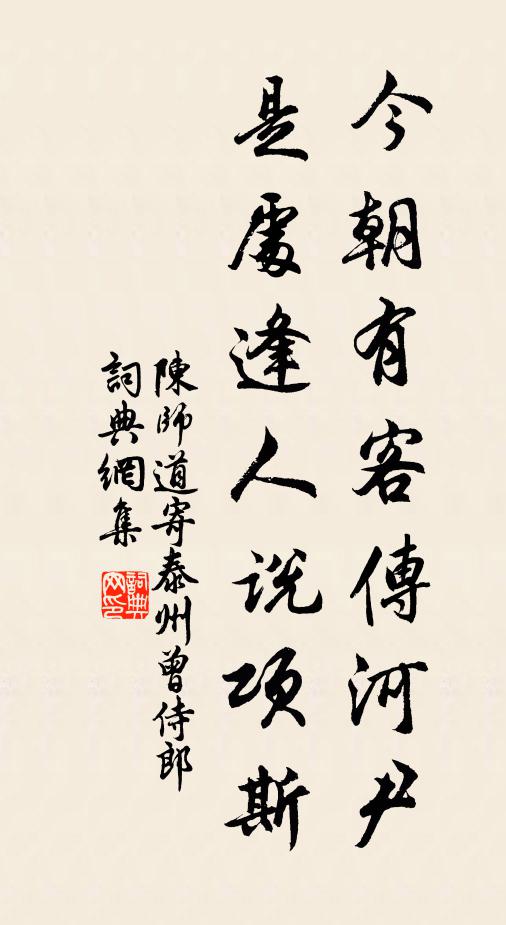 今朝有客傳河尹
是處逢人說項斯
陳師道寄泰州曾侍郎
詞典網集
詞典网印